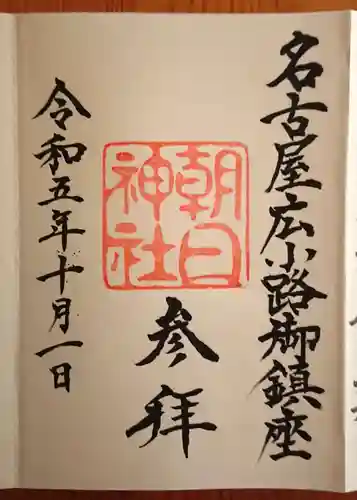 名古屋広小路御鎮座
朝日
神社
参拝
令和五年十月一日